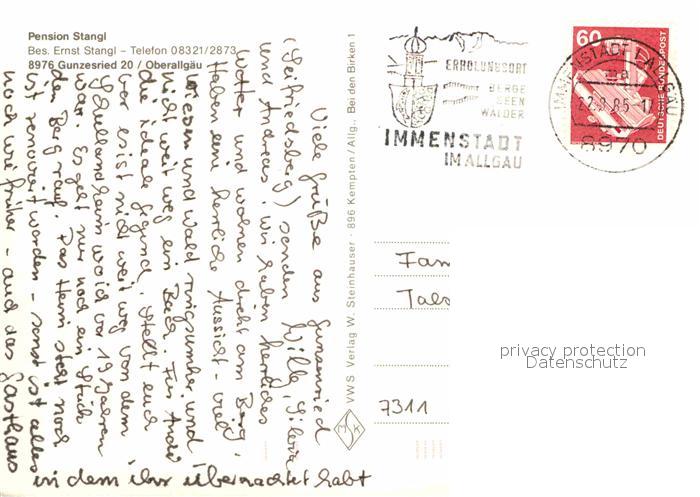 Pension Stangl
Bes. Ernst Stangl – Telefon 08321/2873
8976 Gunzesried 20 / Oberallgäu
Viele Grüße aus Gunzesried
(Seifriedsberg) senden Willi, Silvia
und Andreas. Wir haben herrliches
Wetter und wohnen direkt am Berg.
Haben eine herrliche Aussicht - viel
Wiesen und Wald ringsumher und
nicht weit weg ein Bach. Für Andi
die ideale Gegend. Stellt euch
vor es ist nicht weit weg von dem
Schullandheim wo ich vor 19 Jahren
war. Es geht nur noch ein Stück
den Berg rauf. Das Heim steht noch
ist renoviert worden - sonst ist alles
noch wie früher - auch das Gasthaus
in dem ihr übernachtet habt
VWS Verlag W. Steinhauser · 896 Kempten/Allg., Bei den Birken 1
MSK
ERHOLUNGSORT
BERGE
SEEN
WÄLDER
IMMENSTADT
IM ALLGÄU
60
DEUTSCHE BUNDESPOST
IMMENSTADT I. ALLGÄU
22.8.85-17
8970
Fam
7311
privacy protection
Datenschutz